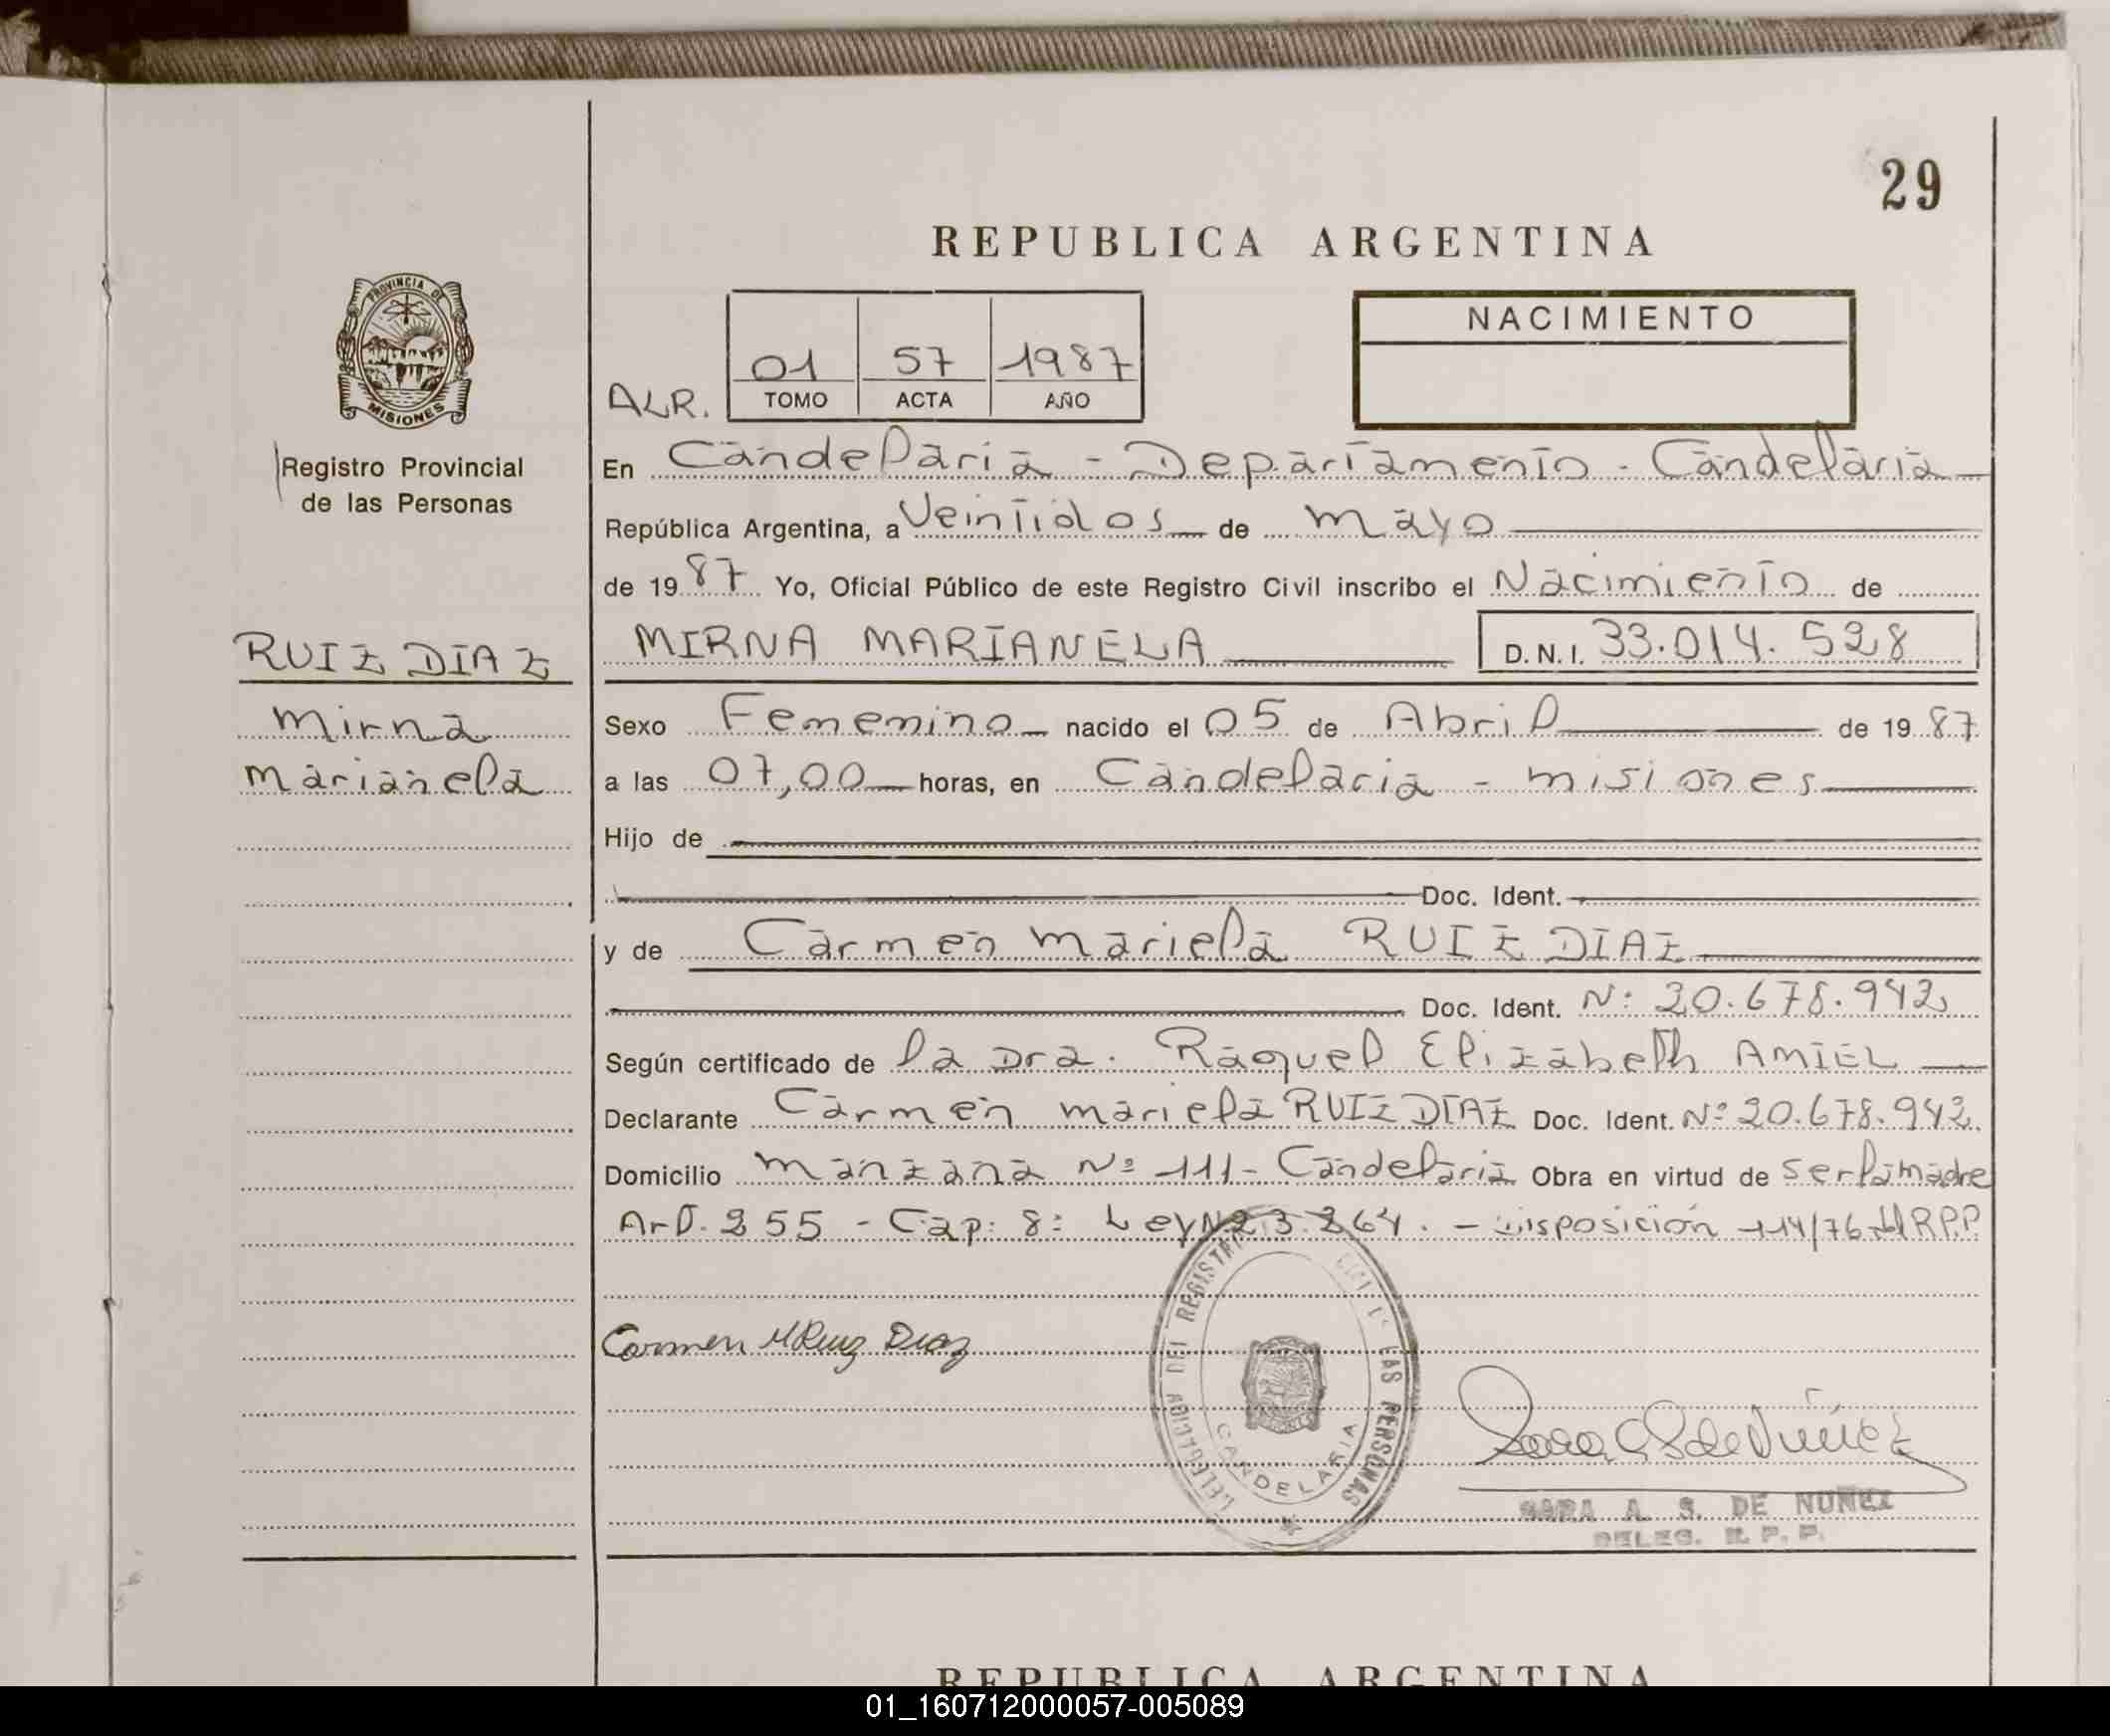 29
REPUBLICA ARGENTINA
PROVINCIA DE
MISIONES
Registro Provincial
de las Personas
RUIZ DIAZ
Mirna
Marianela
NACIMIENTO
ALR.
01 57 1987
TOMO ACTA AÑO
En Candelaria - Departamento - Candelaria
República Argentina, a Veintidos de Mayo
de 1987 Yo, Oficial Público de este Registro Civil inscribo el Nacimiento de
MIRNA MARIANELA D.N.I. 33.014.528
Sexo Femenino nacido el 05 de Abril de 1987
a las 07,00 horas, en Candelaria - Misiones
Hijo de
Doc. Ident.
y de Carmen Mariela RUIZ DIAZ
Doc. Ident. Nº 20.678.942
Según certificado de la Dra. Raquel Elizabeth AMIEL
Declarante Carmen Mariela RUIZ DIAZ Doc. Ident. Nº 20.678.942
Domicilio Manzana Nº 111 - Candelaria Obra en virtud de ser la madre
Art. 255 - Cap: 8: Ley Nº 23.264. - Disposición 114/76
Carmen M Ruiz Diaz
DELEGACION DEL REGISTRO
LAS PERSONAS
CANDELARIA
Sara de Núñez
SARA A. S. DE NUÑEZ
DELEG. R. P. P.
REPUBLICA ARGENTINA
01_160712000057-005089